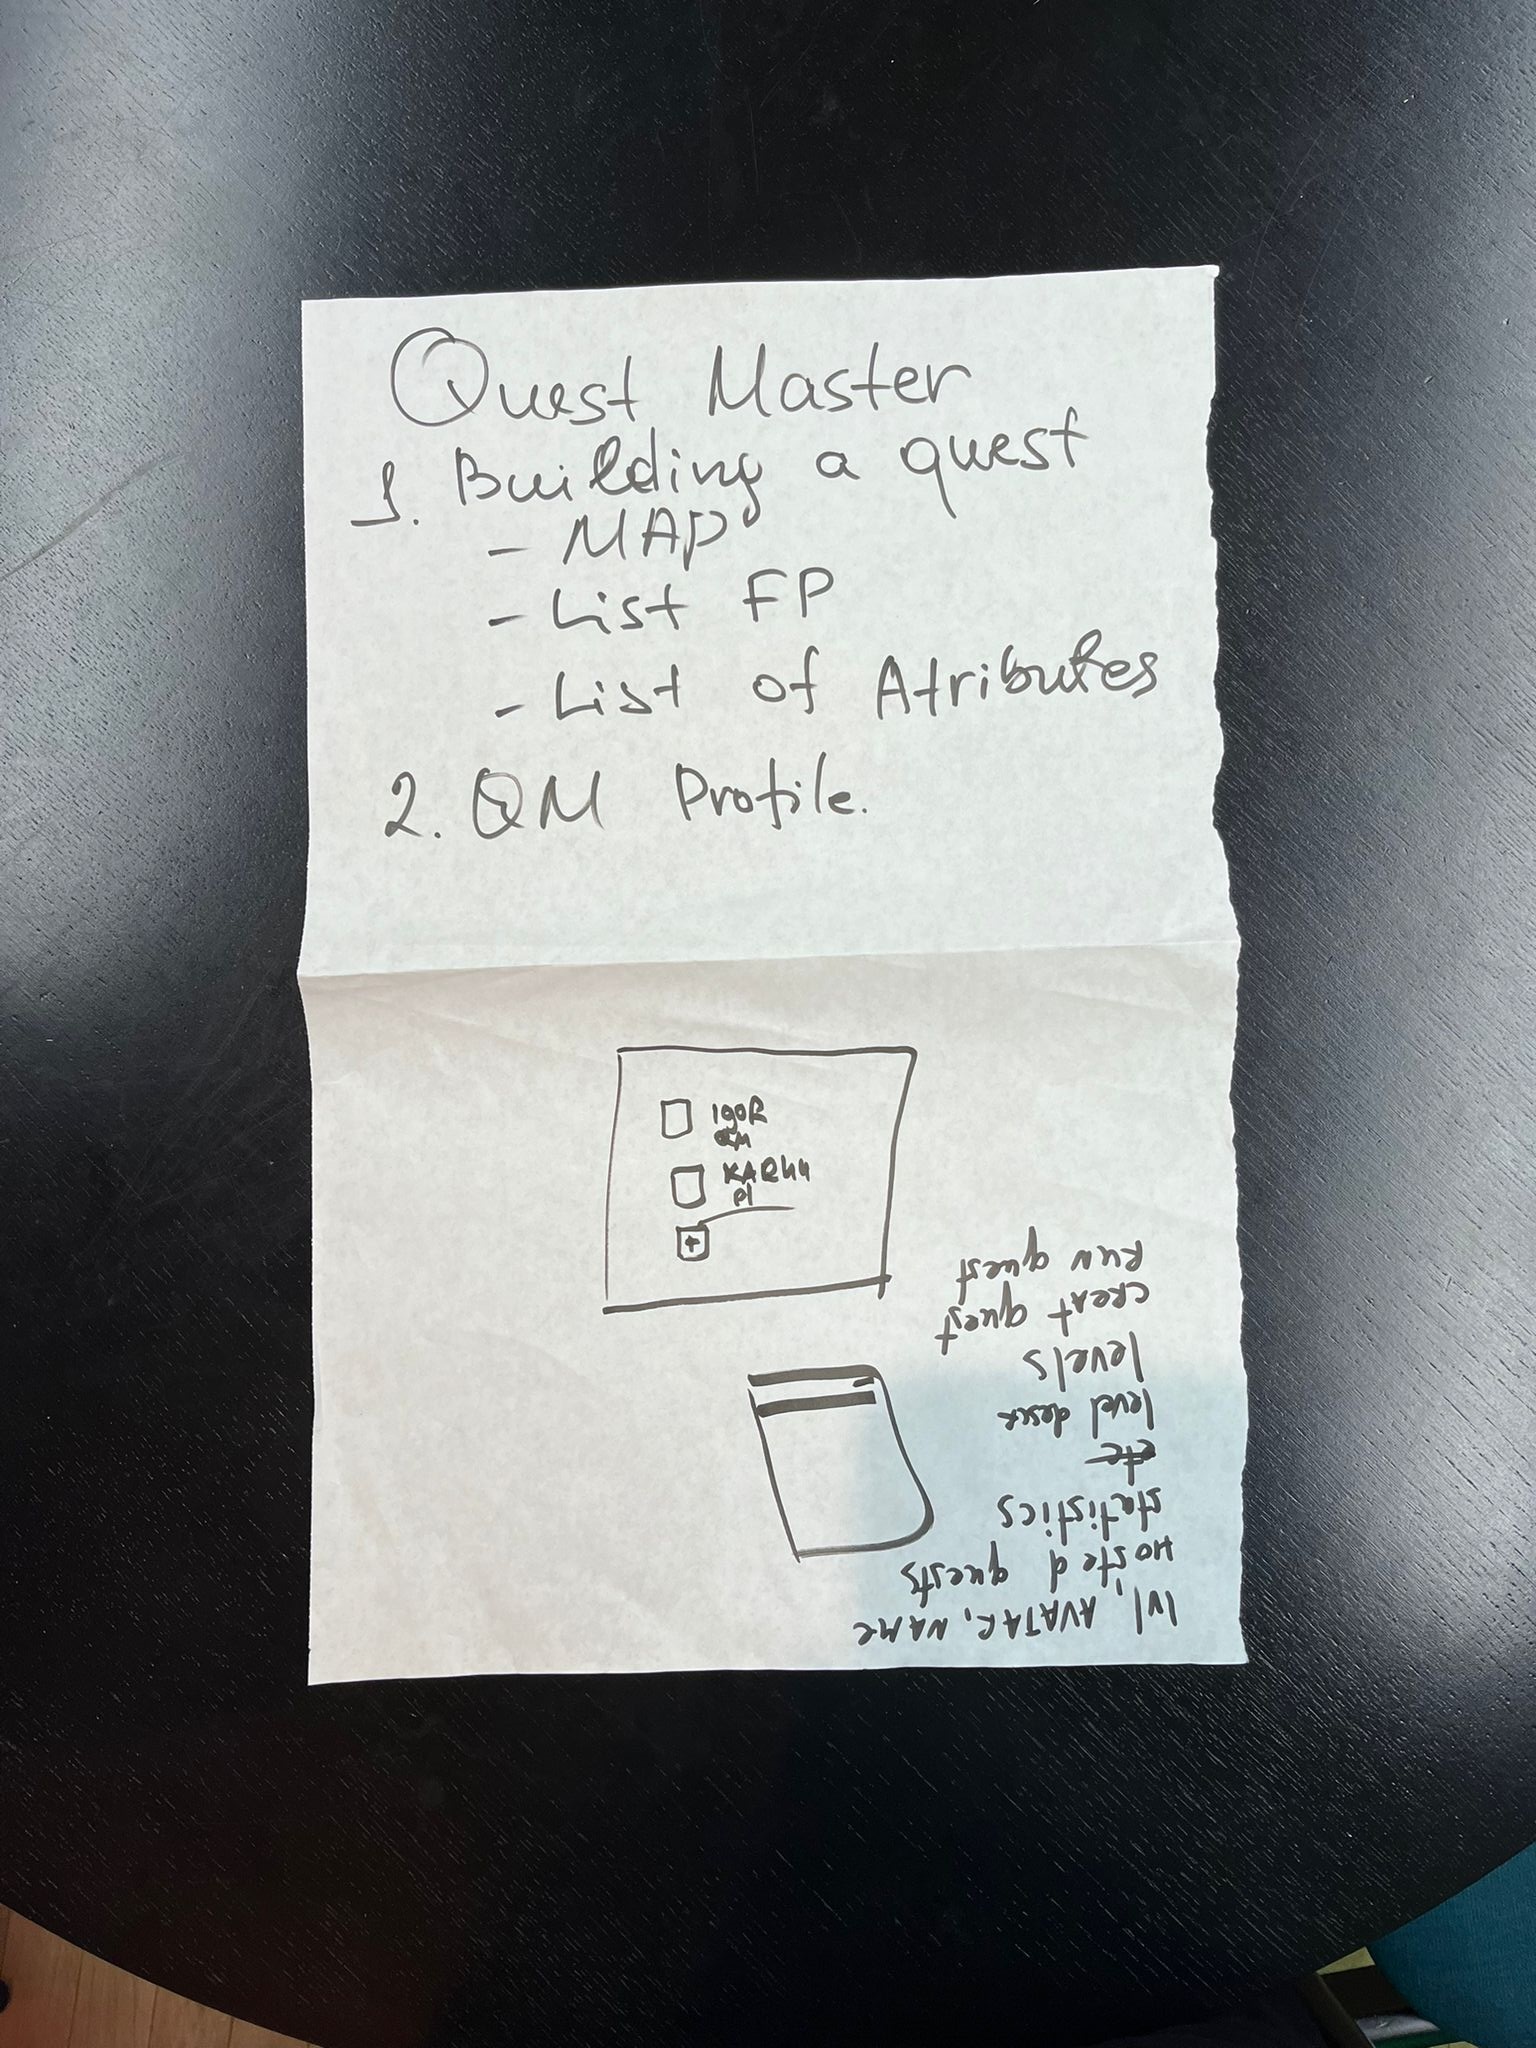 Quest Master
1. Building a quest
- MAP
- List FP
- List of Atributes
2. QM Profile.
IgoR
QM
pl
+
lvl, AVATAR, NAME
Hosted quests
statistics
etc
level descr
levels
CREAT quest
RUN quest